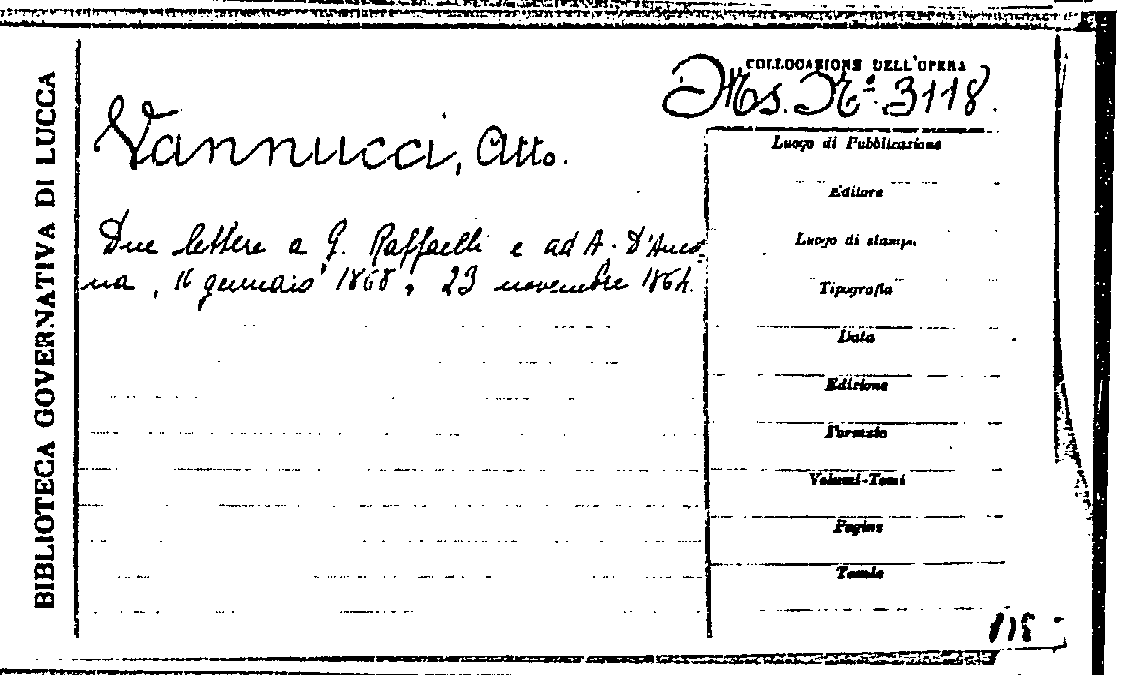 BIBLIOTECA GOVERNATIVA DI LUCCA
COLLOCAZIONE DELL'OPERA
Ms. N.º 3118.
Vannucci, Atto.
Due lettere a G. Raffaelli e ad A. D'Anco-
na, 16 gennaio 1868, 23 novembre 1864.
Luogo di Pubblicazione
Editore
Luogo di stampa
Tipografia
Data
Edizione
Formato
Volumi-Tomi
Pagine
Tavole